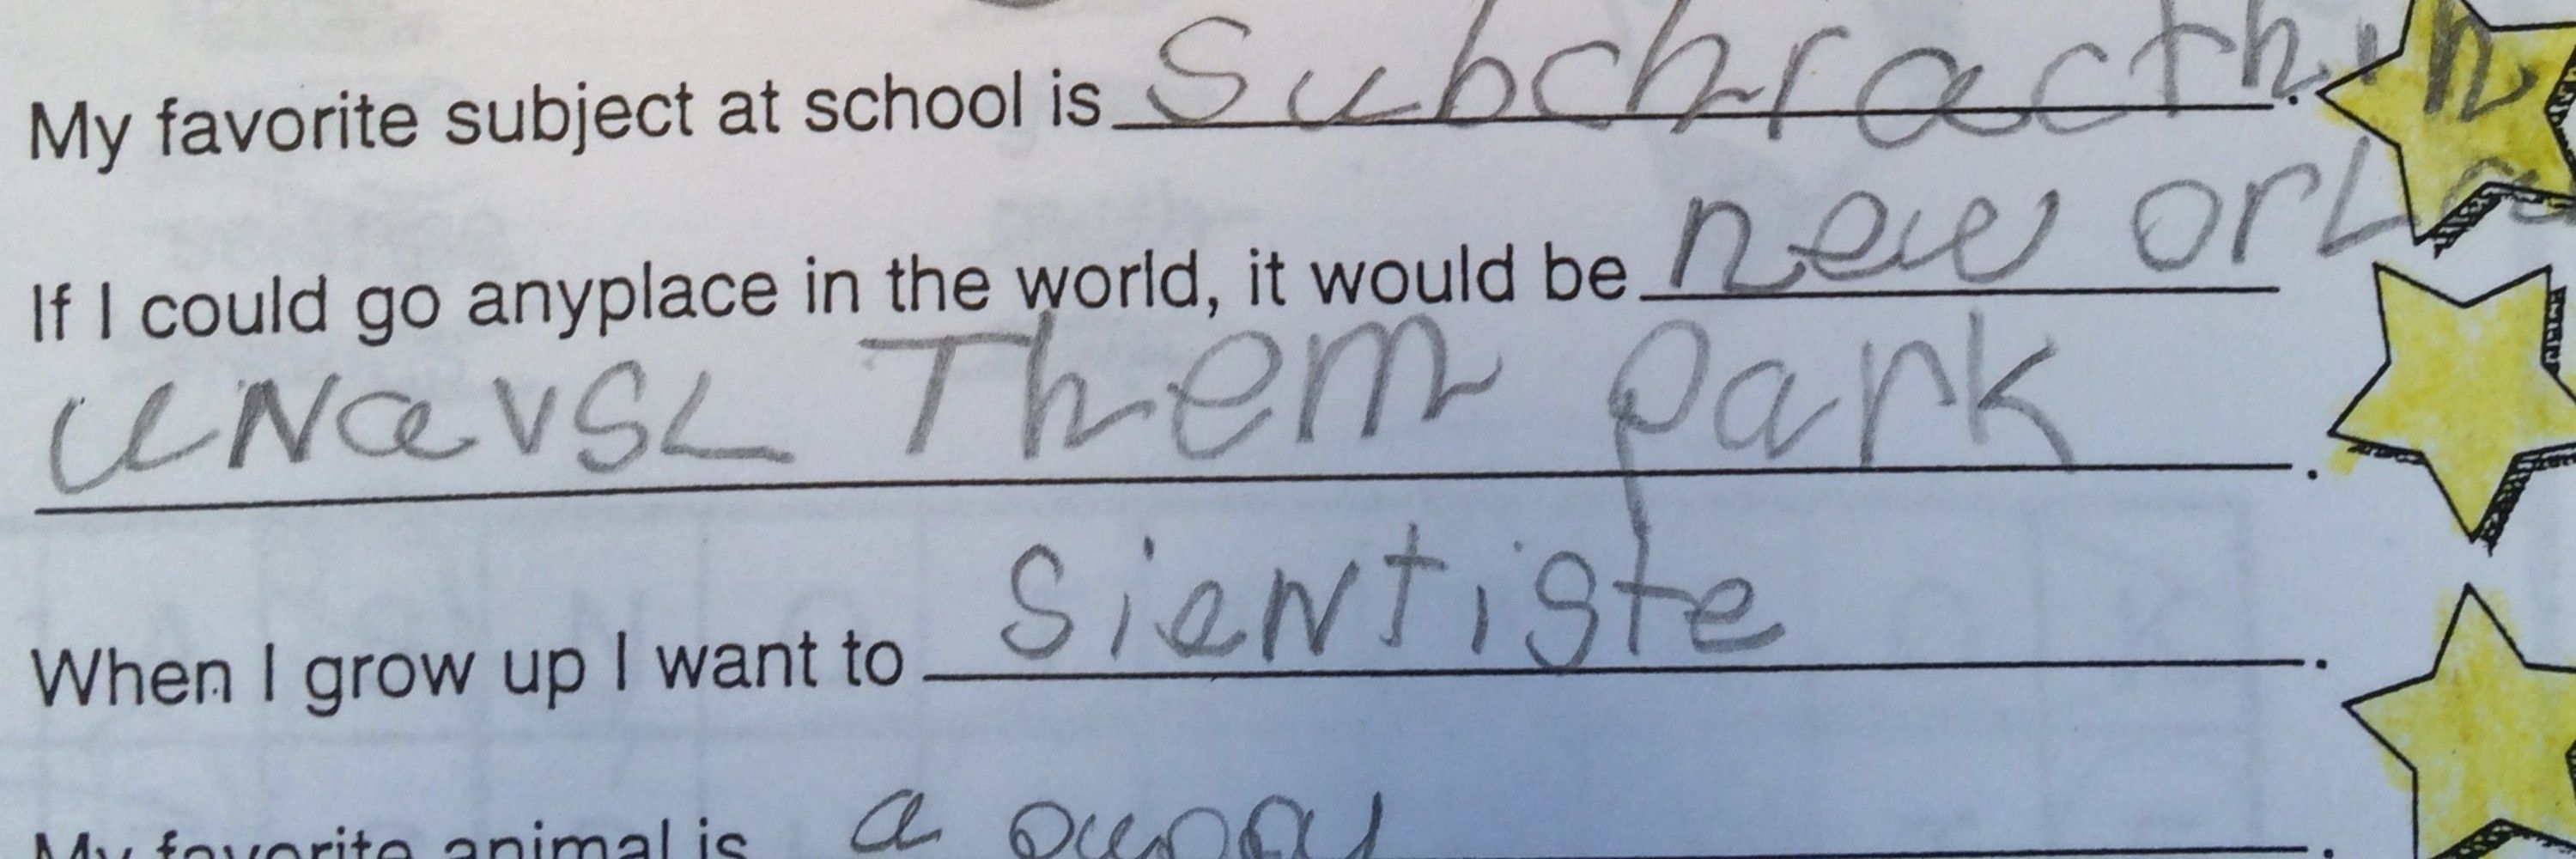 My favorite subject at school is Subchracthin.
If I could go anyplace in the world, it would be new orL
uNavsL Them park.
When I grow up I want to Sientiste.
My favorite animal is a puppy.